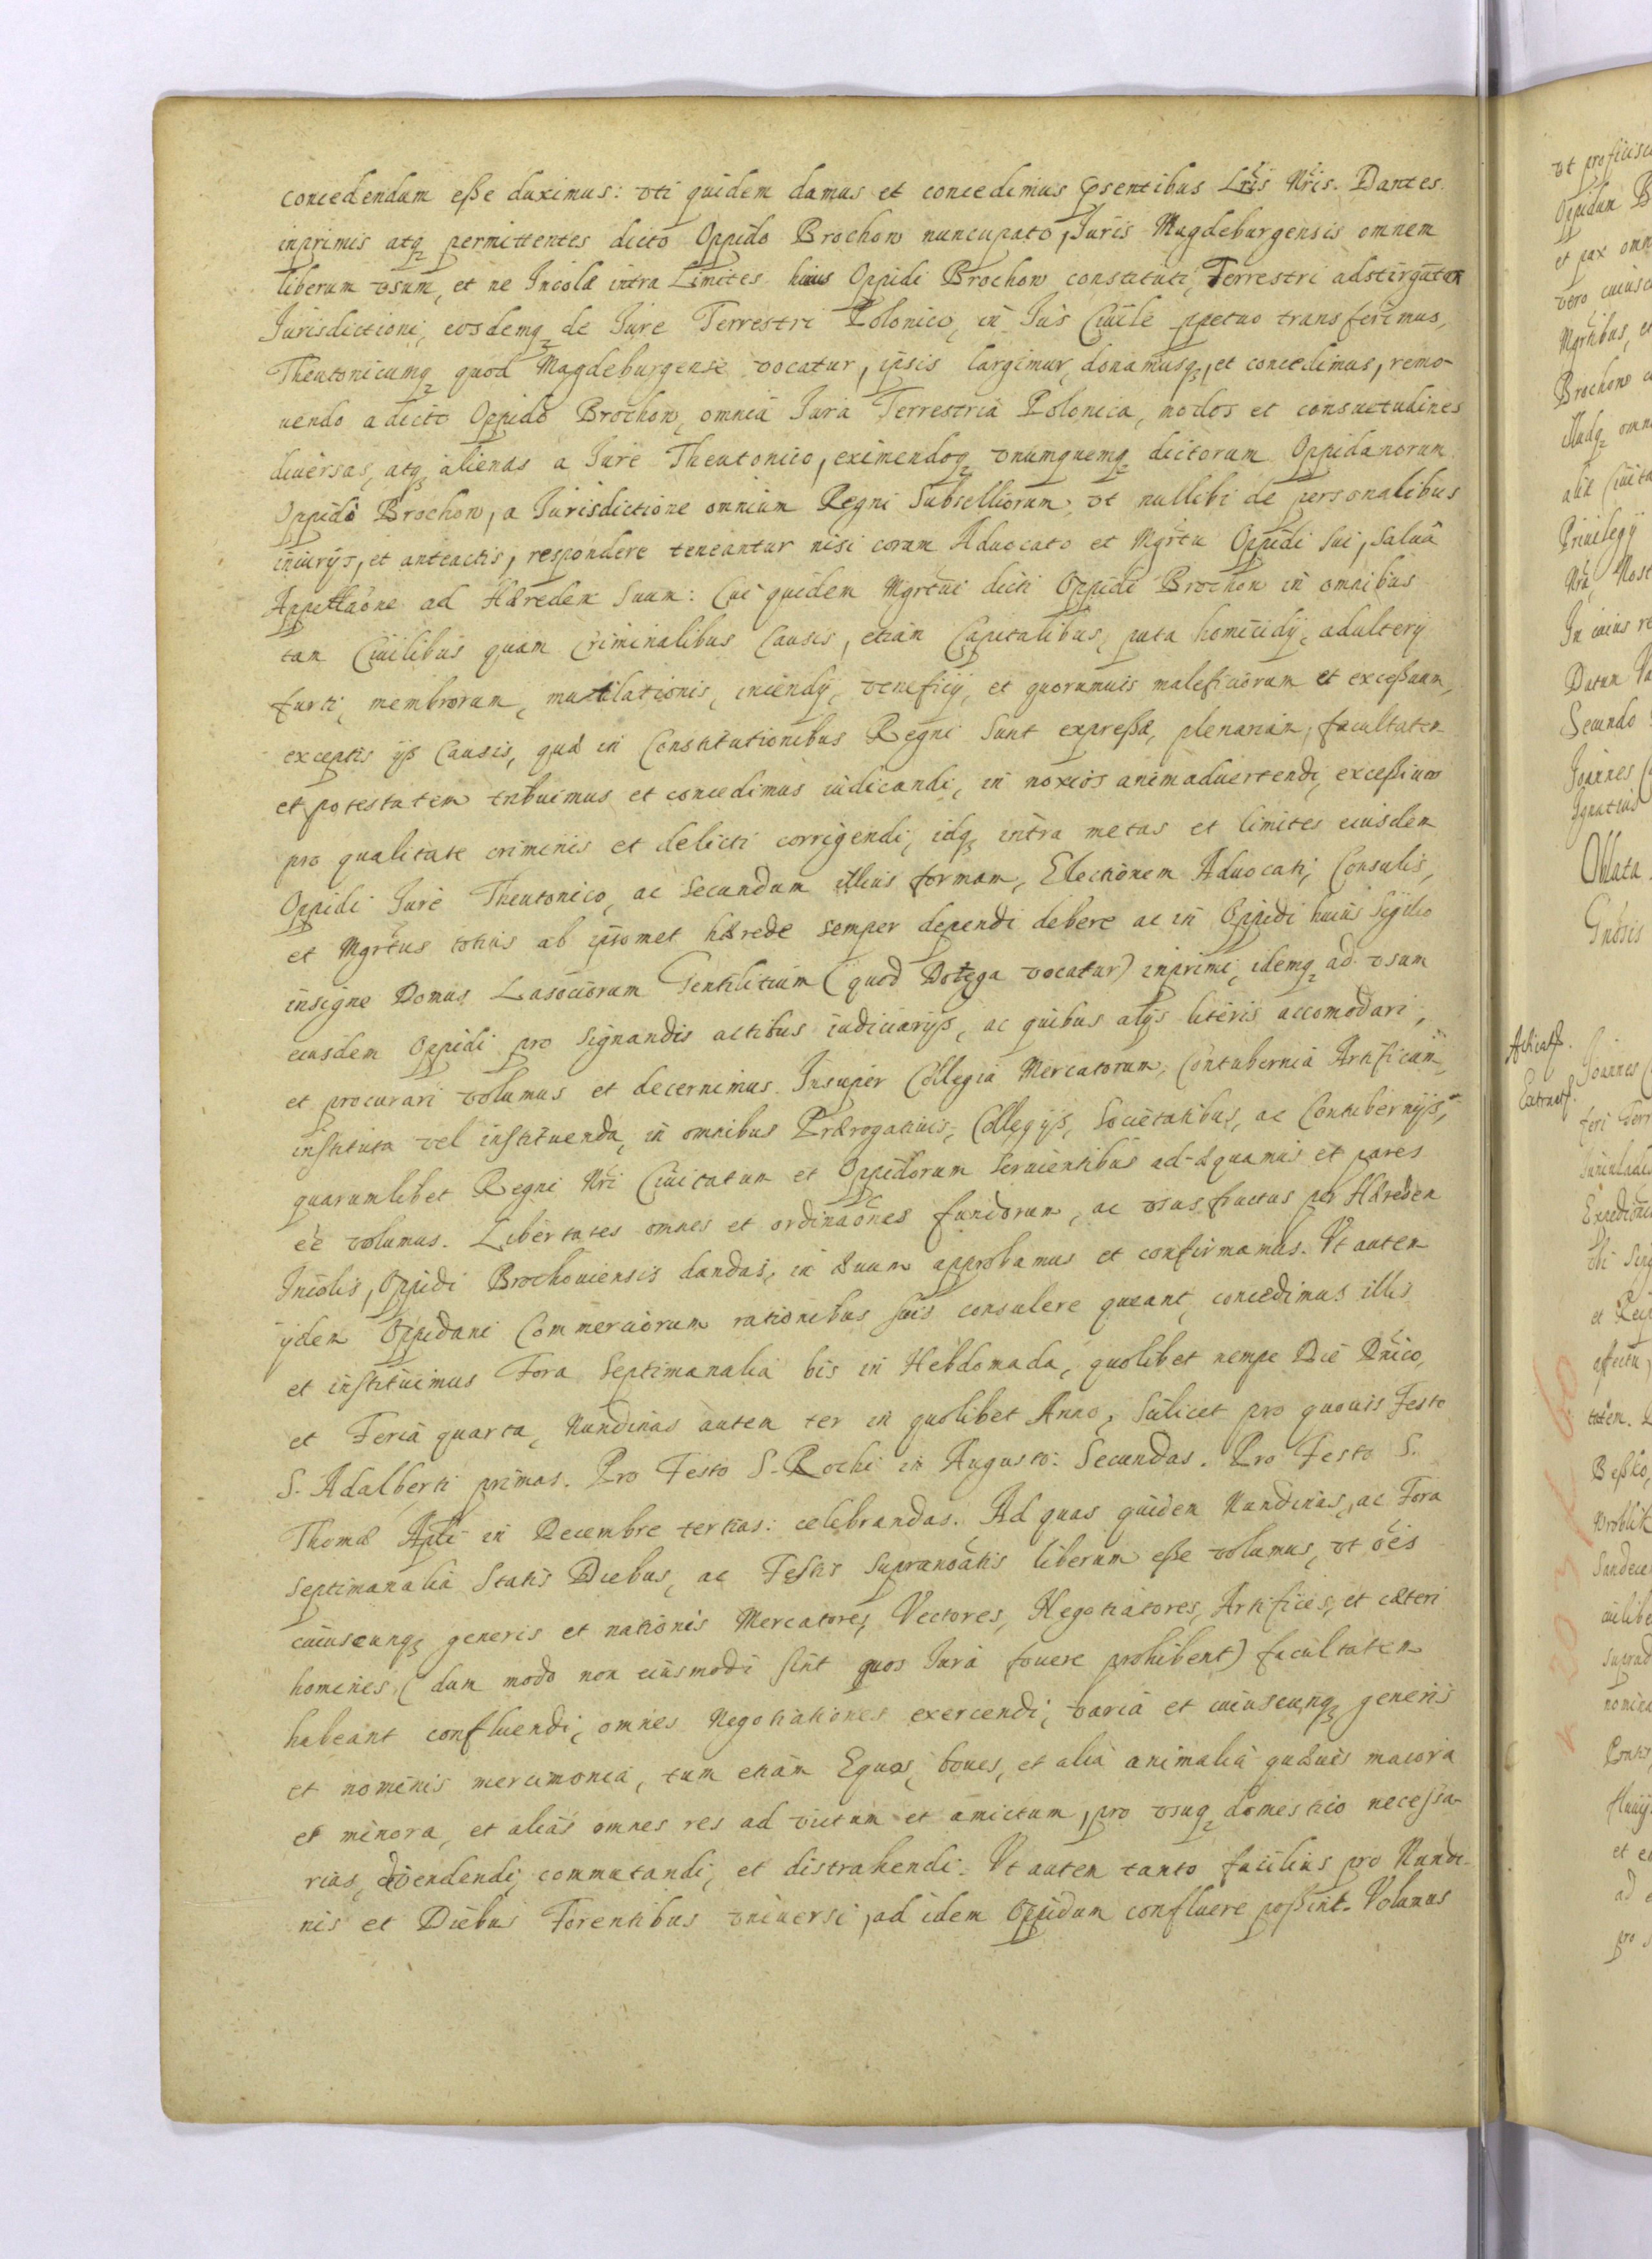 concedendum eße duximus: vti quidem damus et concedimus psentibus Lris Nris. Dantes
inprimis atq permittentes dicto Oppido Brochow nuncupato, Juris Magdeburgensis omnem
liberum vsum, et ne Incolæ intra Limites huius Oppidi Brochow constituti, Terrestri adstringātur
Jurisdictioni, eosdemq de Jure Terrestri Polonico, in Jus Ciuile ppetuo transferimus,
Theutonicumq quod Magdeburgense vocatur, ipsis largimur, donamusq, et concedimus, remo-
uendo a dicto Oppido Brochow, omnia Jura Terrestria Polonica, modos et consuetudines
diuersas, atq alienas a Jure Theutonico, eximendoq vnumquemq dictorum Oppidanorum
Oppidi Brochow, a Jurisdictione omnium Regni Subselliorum, vt nullibi de personalibus
iniurijs, et anteactis, respondere teneantur nisi coram Aduocato et Mgrtu Oppidi sui, salua
Appellaōne ad Hæredem suum: Cui quidem Mgrtui dicti Oppidi Brochow in omnibus
tam Ciuilibus quam Criminalibus Causis, etiam Capitalibus, puta homicidij, adulterij
furti, membrorum, mutilationis, incendij, veneficij, et quorumuis maleficiorum et exceßuum,
exceptis ijs Causis, quæ in Constitutionibus Regni sunt expreßæ, plenariam, facultatem
et potestatem tribuimus et concedimus iudicandi, in noxios animaduertendi, exceßiuos
pro qualitate criminis et delicti corrigendi, idq intra metas et limites eiusdem
Oppidi Jure Theutonico, ac secundum illius formam, Electionem Aduocati, Consulis,
et Mgrtus totius ab ipsomet hærede semper dependi debere ac in Oppidi huius Sigillo
insigne Domus Lasociorum Gentilitium (quod Dołęga vocatur) inprimi, idemq ad vsum
eiusdem Oppidi pro signandis actibus iudiciarijs, ac quibus alijs literis accomodari,
et procurari volumus et decernimus. Insuper Collegia Mercatorum, Contubernia Artificum,
instituta vel instituenda, in omnibus Prærogatiuis, Collegijs, Societatibus, ac Contubernijs,
quarumlibet Regni Nri Ciuitatum et Oppidorum seruientibus ad-æquamus et pares
eē volumus. Libertates omnes et ordinaōnes fundorum, ac vsusfructus per Hæredem
Incolis, Oppidi Brochouiensis dandas, in æuum approbamus et confirmamus. Vt autem
ijdem Oppidani Commerciorum rationibus suis consulere queant, concedimus illis
et instituimus Fora Septimanalia bis in Hebdomada, quolibet nempe Die Dnico,
et Feria quarta, Nundinas autem ter in quolibet Anno, scilicet pro quouis Festo
S. Adalberti primas. Pro Festo S. Rochi in Augusto: Secundas. Pro Festo S.
Thomæ Apli in Decembre tertias: celebrandas. Ad quas quidem Nundinas, ac Fora
Septimanalia statis Diebus, ac Festis supranoātis liberum eße volumus, vt oēs
cuiuscunq generis et nationis Mercatores, Vectores, Negotiatores, Artifices, et cæteri
homines, (dum modo non eiusmodi sint quos Jura fouere prohibent) facultatem
habeant confluendi, omnes Negotiationes exercendi, varia et cuiuscunq generis
et nominis mercimonia, tum etiam Equos, boues, et alia animalia quæuis maiora
et minora, et alias omnes res ad victum et amictum, pro vsuq domestico necessa-
rias, diuendendi, commutandi, et distrahendi. Vt autem tanto facilius pro Nundi-
nis et Diebus Forentibus vniuersi, ad idem Oppidum confluere poßint. Volumus